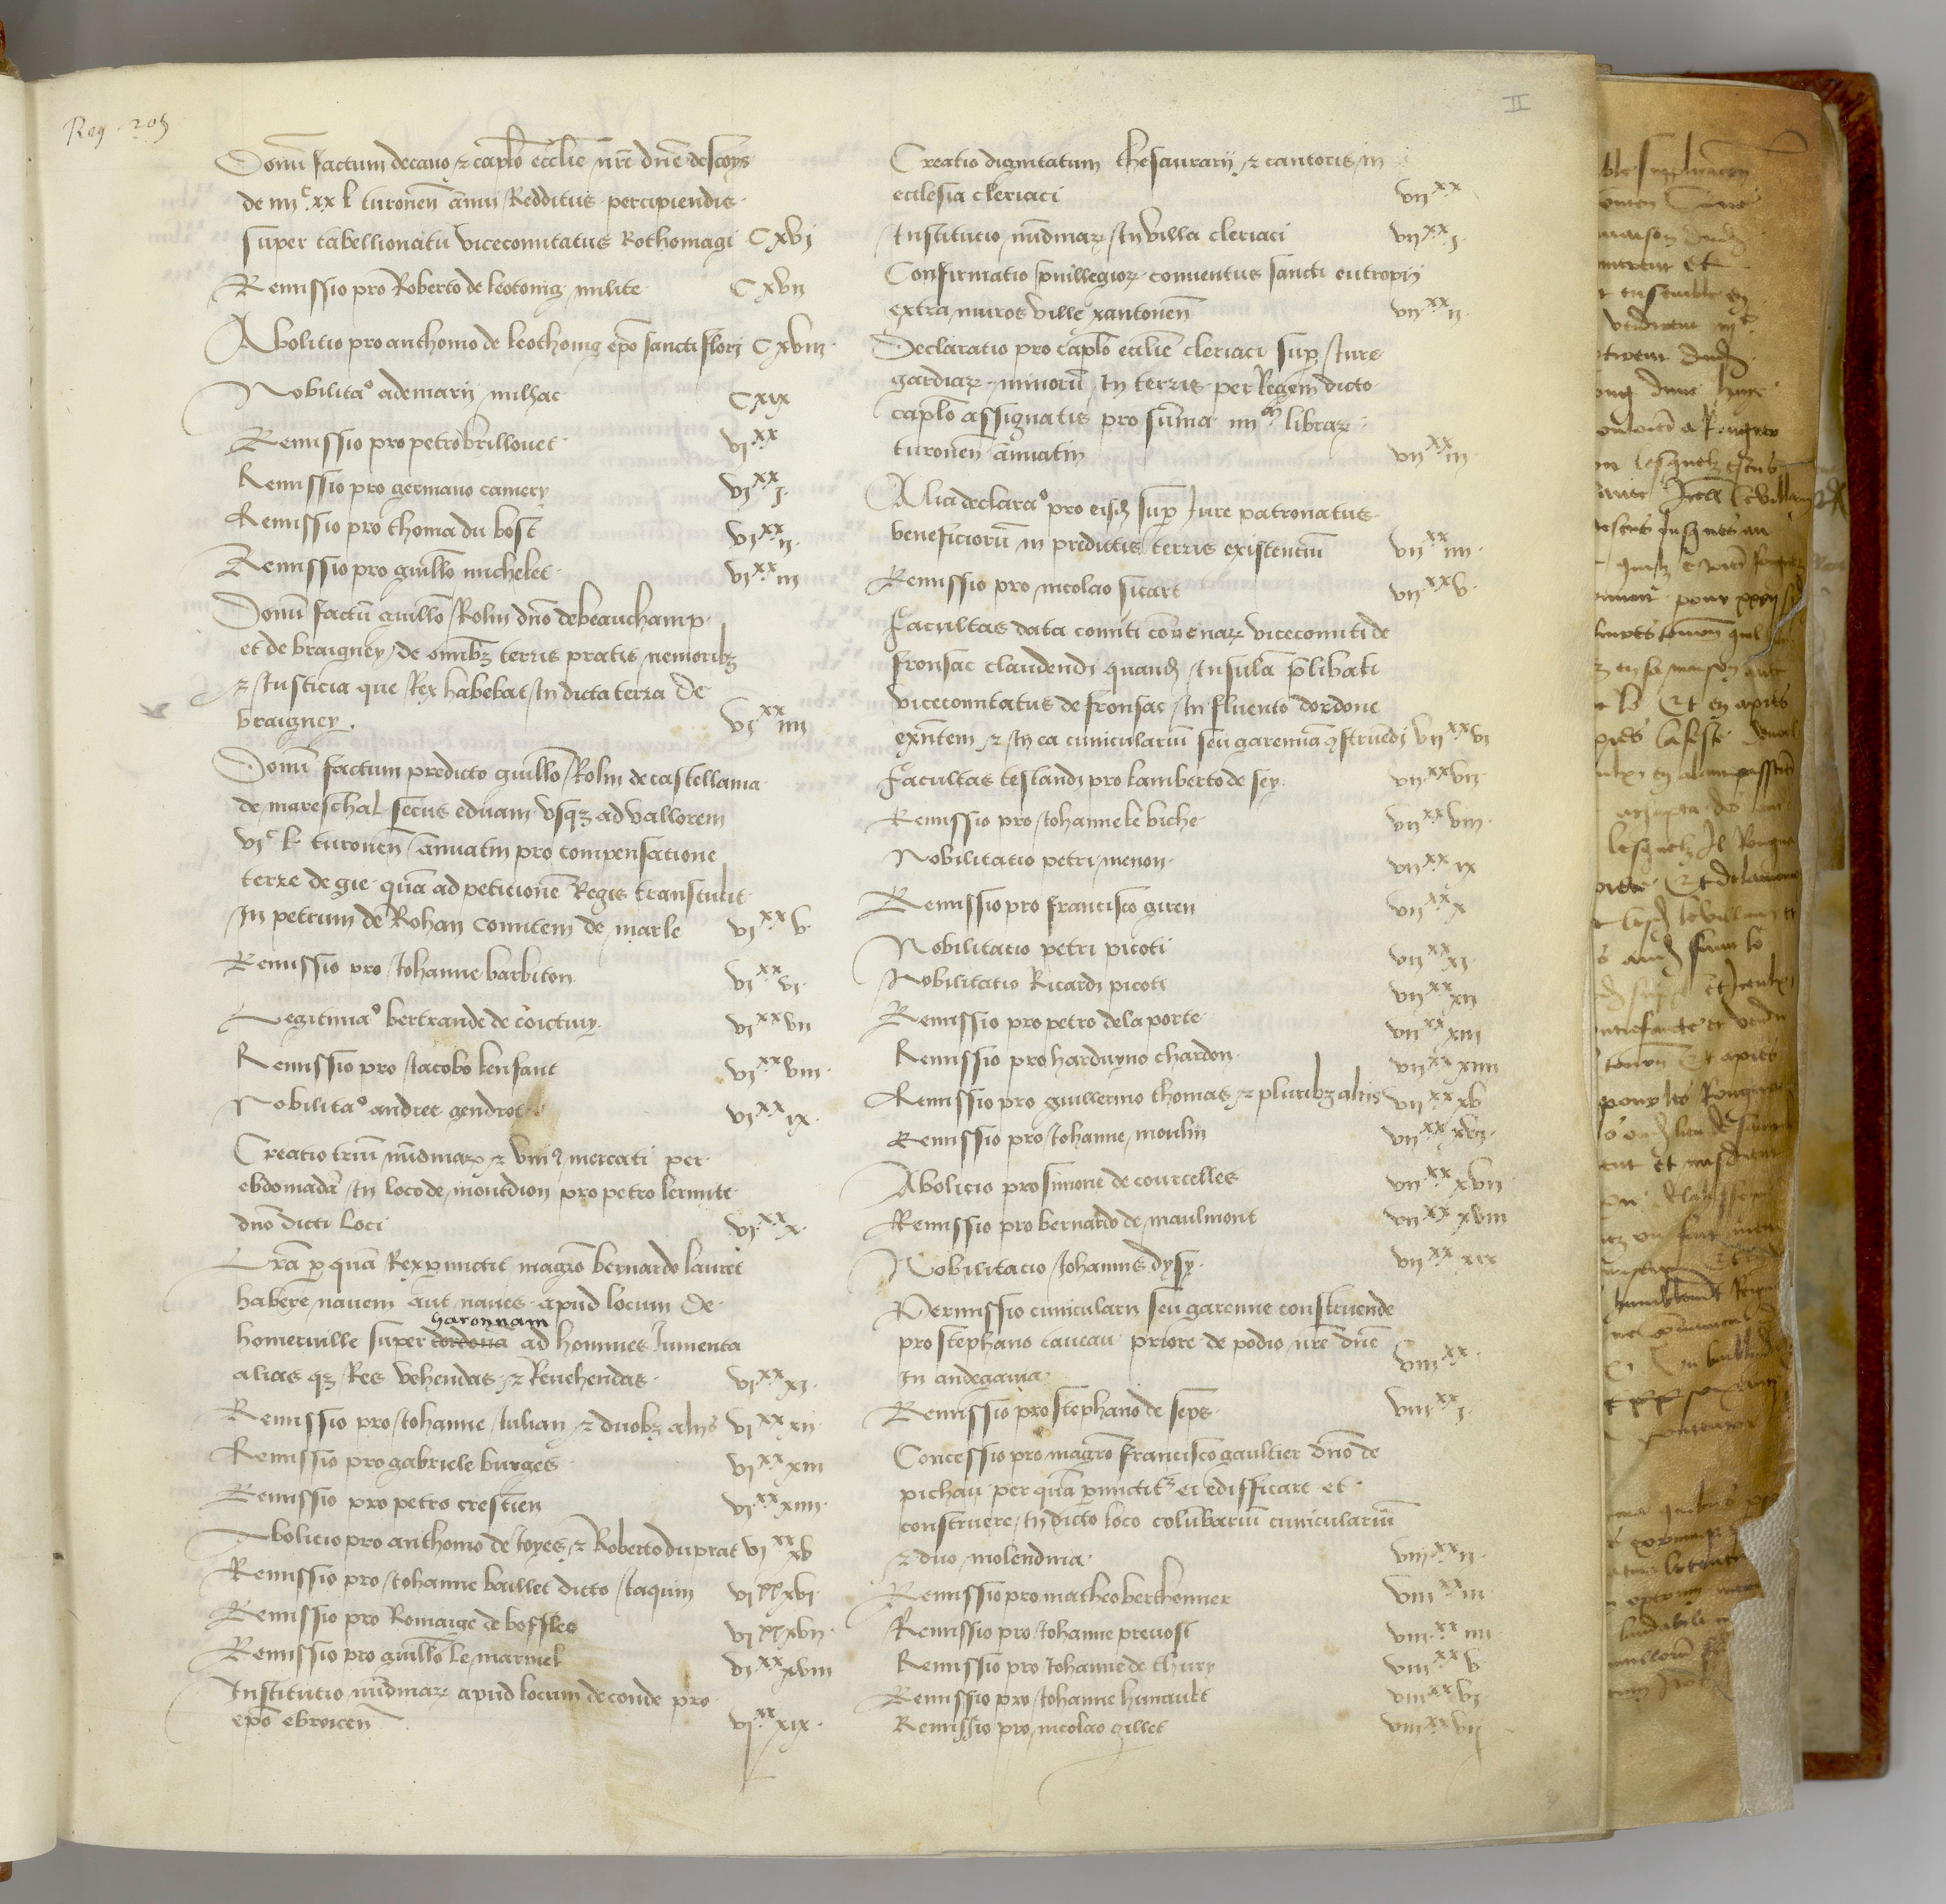 Reg. 205
II
Donū factum decano & caplo ecclie nre dne descoys
de iiijc xx l turonen annui Redditus percipiendis
super tabellionatu vicecomitatus Rothomagi Cxvj
Remissio pro Roberto de leotoing milite Cxvij
Abolitio pro anthonio de leothoing epo sancti flori Cxviij
Nobilitao ademarij milhac Cxix
Remissio pro petro brillouet vj xx
Remissio pro germano camery vj xx j
Remissio pro thoma du bost vj xx ij
Remissio pro guillo michelet vj xx iij
Donū factū guillo Rolin dno de beauchamp
et de braigney de omibz terris pratis nemoribz
& Justicia que Rex habebat In dicta terra de
braigney. vj xx iiij
Donū factum predicto guillo Rolin de castellania
de mareschal secus eduam Vsqz ad vallorem
vjc l turonen annuatim pro compensatione
terre de gie quā ad peticionē Regis transtulit
In petrum de Rohan comitem de marle vj xx v
Remissio pro Johanne barbiton vj xx vj
Legitimao bertrande de coictiuy vj xx vij
Remissio pro Jacobo lenfant vj xx viij
Nobilitao andree gendrot vj xx ix
Creatio triū nūdinarz & vniq mercati per
ebdomadā In loco de montdion pro petro lermite
dno dicti loci vj xx x
Lra p quā Rex pmictit magro bernardo lauret
habere nauem aut naues apud locum de
garonnam
homeruille super dordona ad homines Jumenta
alias qz Res vehendas & Reuehendas vj xx xj
Remissio pro Johanne Julian & duobz alijs vj xx xij
Remissio pro gabriele burges vj xx xiij
Remissio pro petro crestien vj xx xiiij
Abolicio pro anthonio de Joyes & Roberto duprat vj xx xv
Remissio pro Johanne baillet dicto Jaquin vj xx xvj
Remissio pro Romaige de boffles vj xx xvij
Remissio pro guillo le marinel vj xx xviij
Institutio nūdinarz apud locum de conde pro
epo ebroicen vj xx xix
Creatio dignitatum thesaurarij & cantoris in
ecclesia cleriaci vij xx
Institucio nūdinarz In villa cleriaci vij xx j
Confirmatio priuillegiorz conuentus sancti eutropij
extra muros ville xantonen vij xx ij
Declaratio pro caplo ecclie cleriaci sup Jure
gardiarz minorū In terris per Regem dicto
caplo assignatis pro sūma iiij m librarz
turonen annuatim vij xx iij
Alia declarao pro eisd sup Jure patronatus
beneficiorū in predictis terris existenciū vij xx iiij
Remissio pro nicolao sicart vij xx v
Facultas data comiti conuenarz vicecomiti de
fronsac claudendi quand Insulā plibati
vicecomitatus de fronsac In fluento dordone
exntem & In ea cuniculariū seu garennā qstruēdi vij xx vj
Facultas testandi pro lamberto de sey vij xx vij
Remissio pro Johanne le biche vij xx viij
Nobilitatio petri menon vij xx ix
Remissio pro francisco guen vij xx x
Nobilitatio petri picoti vij xx xj
Nobilitatio Ricardi picoti vij xx xij
Remissio pro petro de la porte vij xx xiij
Remissio pro harduyno chardon vij xx xiiij
Remissio pro guillermo thomas & pluribz alijs vij xx xv
Remissio pro Johanne moulin vij xx xvj
Abolicio pro simone de courcelles vij xx xvij
Remissio pro bernardo de maulmont vij xx xviij
Nobilitacio Johannis dysy vij xx xix
Permissio cunicularii seu garenne construende
pro stephano caueau priore de podio nre dne
In andegauia viij xx
Remissio pro stephano de seps viij xx j
Concessio pro magro francisco gaultier dno de
pichau per quā pmictitr ei edifficare et
construere In dicto loco colūbariū cuniculariū
& duo molendina viij xx ij
Remissio pro matheo berthonner viij xx iij
Remissio pro Johanne preuost viij xx iiij
Remissio pro Johanne de thury viij xx v
Remissio pro Johanne hunault viij xx vj
Remissio pro nicolao gillet viij xx vij